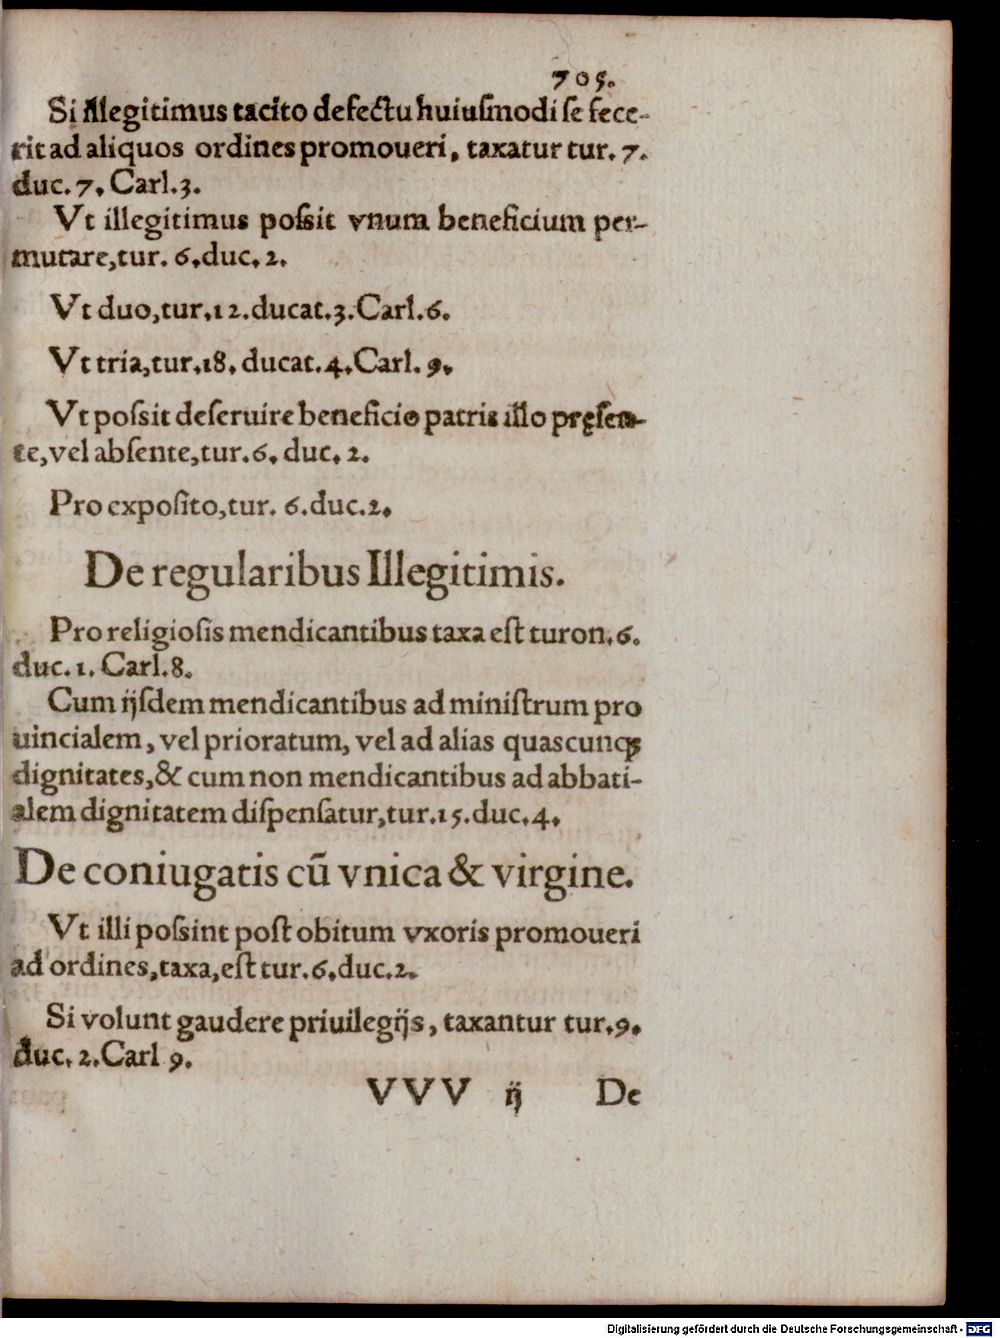 705.
Si illegitimus tacito defectu huiuſmodi ſe fece-
rit ad aliquos ordines promoueri, taxatur tur. 7.
duc. 7, Carl.3.
Vt illegitimus poſsit vnum beneficium per-
mutare,tur. 6.duc. 2.
Vt duo,tur.12.ducat.3.Carl.6.
Vt tria,tur.18. ducat.4.Carl. 9.
Vt poſsit deſeruire beneficio patris illo pręſen-
te,vel abſente,tur.6. duc. 2.
Pro expoſito,tur. 6.duc.2.
De regularibus Illegitimis.
Pro religioſis mendicantibus taxa eſt turon.6.
duc. 1. Carl.8.
Cum ijſdem mendicantibus ad miniſtrum pro
uincialem, vel prioratum, vel ad alias quascunqꝫ
dignitates,& cum non mendicantibus ad abbati-
alem dignitatem diſpenſatur,tur.15.duc.4.
De coniugatis cū vnica & virgine.
Vt illi poſsint poſt obitum vxoris promoueri
ad ordines,taxa,eſt tur.6.duc.2.
Si volunt gaudere priuilegijs, taxantur tur.9.
duc. 2.Carl 9.
VVV ij De
Digitalisierung gefördert durch die Deutsche Forschungsgemeinschaft - DFG